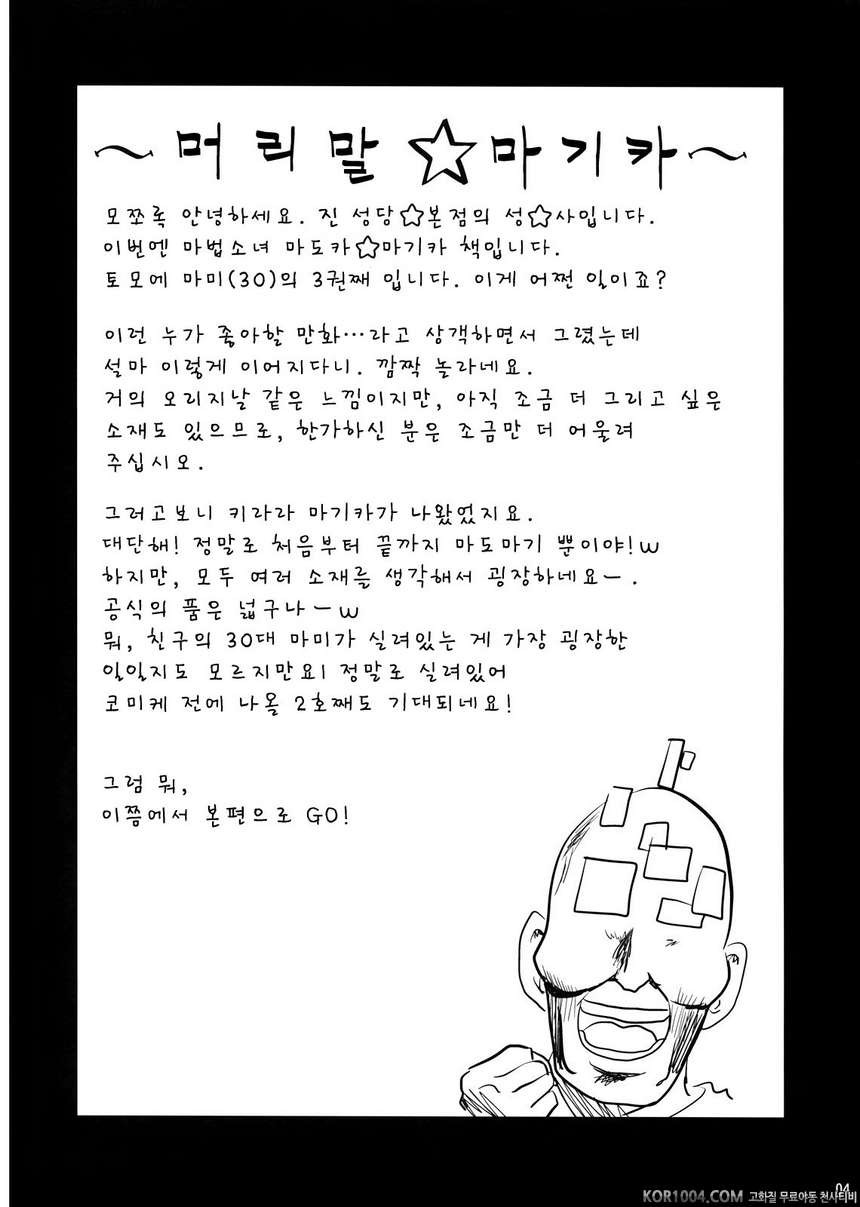 ~머리말☆마기카~
모쪼록 안녕하세요. 진 성당☆본점의 성☆사입니다.
이번엔 마법소녀 마도카☆마기카 책입니다.
토모에 마미(30)의 3권째 입니다. 이게 어쩐 일이죠?
이런 누가 좋아할 만화…라고 상객하면서 그렸는데
설마 이렇게 이어지다니. 깜짝 놀라네요.
거의 오리지날 같은 느낌이지만, 아직 조금 더 그리고 싶은
소재도 있으므로, 한가하신 분은 조금만 더 어울려
주십시오.
그러고보니 키라라 마기카가 나왔었지요.
대단해! 정말로 처음부터 끝까지 마도마기 뿐이야!w
하지만, 모두 여러 소재를 생각해서 굉장하네요ー.
공식의 품은 넓구나ーw
뭐, 친구의 30대 마미가 실려있는 게 가장 굉장한
일일지도 모르지만요! 정말로 실려있어
코미케 전에 나올 2호째도 기대되네요!
그럼 뭐,
이쯤에서 본편으로 GO!
04
KOR1004.COM 고화질 무료야동 천사티비